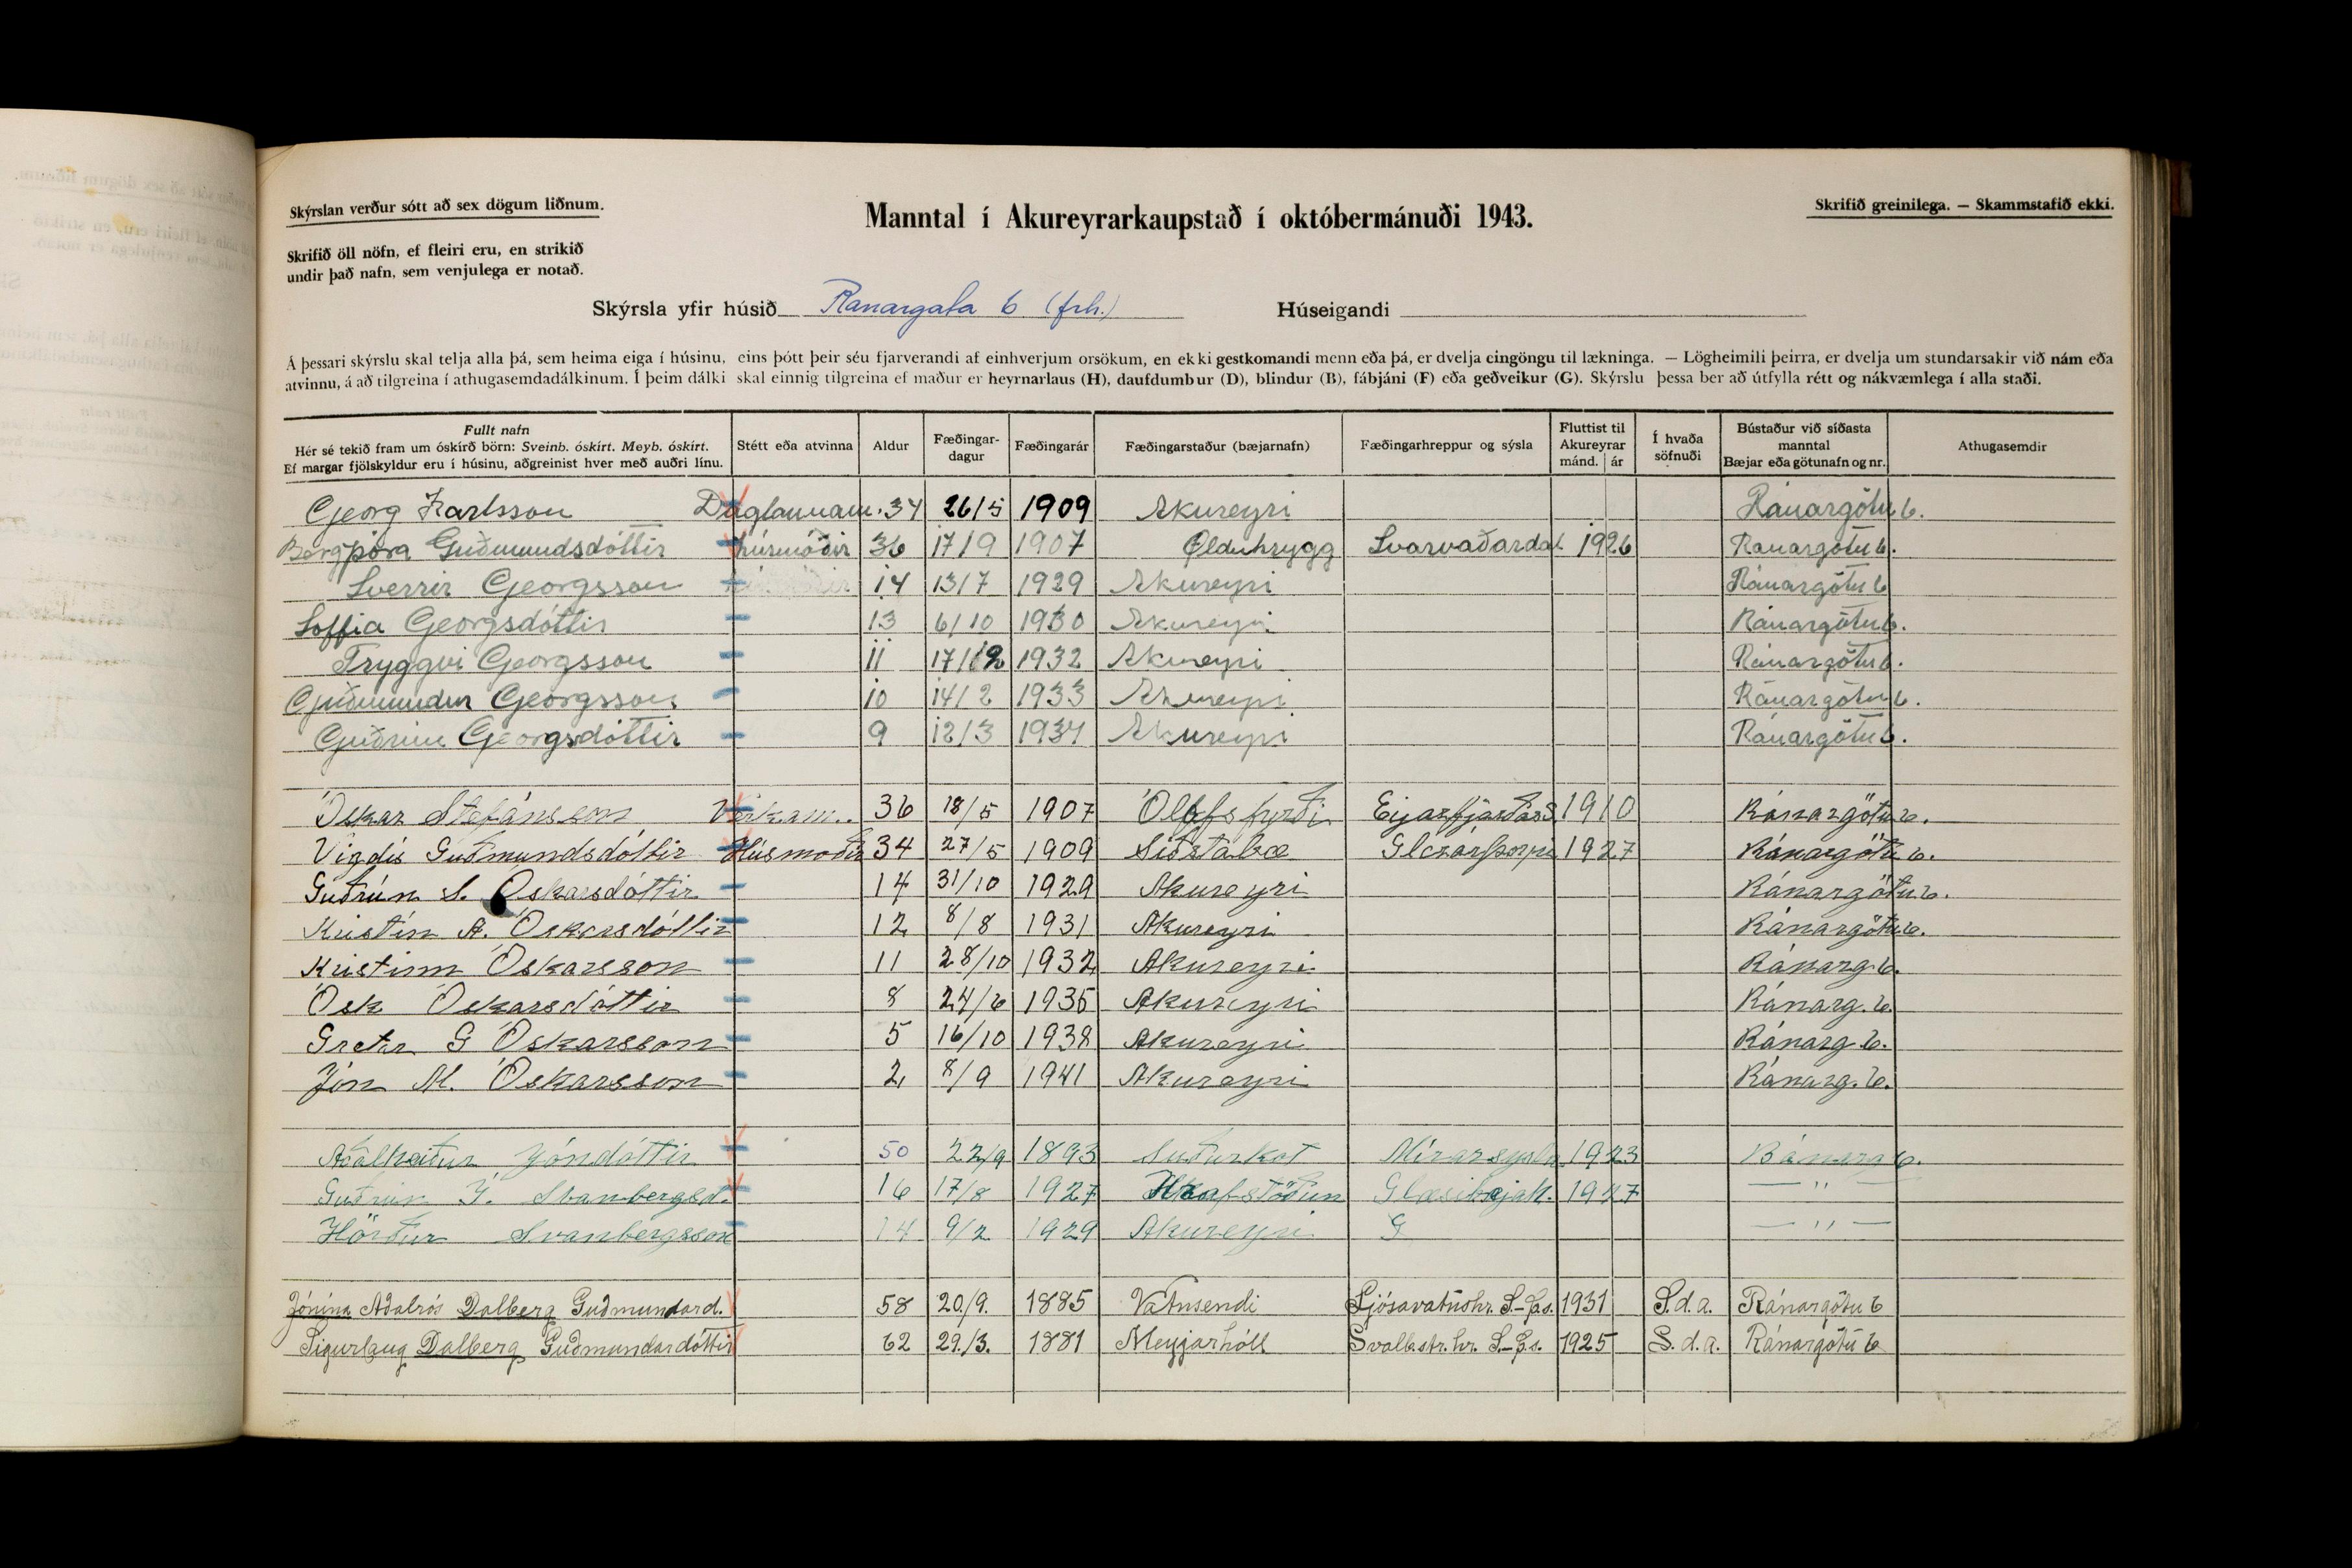 Skýrslan verður sótt að sex dögum liðnum.
Manntal í Akureyrarkaupstað í októbermánuði 1943.
Skrifið greinilega. — Skammstafið ekki.
Skrifið öll nöfn, ef fleiri eru, en strikið
undir það nafn, sem venjulega er notað.
Skýrsla yfir húsið Ranargata 6 (frh.) Húseigandi
Á þessari skýrslu skal telja alla þá, sem heima eiga í húsinu, eins þótt þeir séu fjarverandi af einhverjum orsökum, en ekki gestkomandi menn eða þá, er dvelja eingöngu til lækninga. — Lögheimili þeirra, er dvelja um stundarsakir við nám eða
atvinnu, á að tilgreina í athugasemdadálkinum. Í þeim dálki skal einnig tilgreina ef maður er heyrnarlaus (H), daufdumbur (D), blindur (B), fábjáni (F) eða geðveikur (G). Skýrslu þessa ber að útfylla rétt og nákvæmlega í alla staði.
Fullt nafn
Hér sé tekið fram um óskírð börn: Sveinb. óskírt. Meyb. óskírt.
Ef margar fjölskyldur eru í húsinu, aðgreinist hver með auðri línu.
Stétt eða atvinna
Aldur
Fæðingar-
dagur
Fæðingarár
Fæðingarstaður (bæjarnafn)
Fæðingarhreppur og sýsla
Fluttist til
Akureyrar
mánd. ár
Í hvaða
söfnuði
Bústaður við síðasta
manntal
Bæjar eða götunafn og nr.
Athugasemdir
Georg Karlsson Daglaunam. 34 26/5 1909 Akureyri Ránargötu 6.
Bergþóra Guðmundsdóttir húsmóðir 36 17/9 1907 Ölduhrygg Svarvaðardal 1926 Ránargötu 6.
Sverrir Georgsson 14 13/7 1929 Akureyri Ránargötu 6
Soffia Georgsdóttir 13 6/10 1930 Akureyri Ránargötu 6.
Tryggvi Georgsson 11 1932 Akureyri Ránargötu 6.
Guðmundur Georgsson 10 14/2 1933 Akureyri Ránargötu 6.
Guðrún Georgsdóttir 9 12/3 1934 Akureyri Ránargötu 6.
Óskar Stefánsson Verkam.. 36 18/5 1907 Ólafsfyrði Eyjarfjarðars. 1910 Ránargötu 6.
Vigdís Guðmundsdóttir Húsmóðir 34 27/5 1909 Glerárþorpi 1927 Ránargötu 6.
Guðrún S. Óskarsdóttir 14 31/10 1929 Akureyri Ránargötu 6.
Kristín A. Óskarsdóttir 12 8/8 1931 Akureyri Ránargötu 6.
Kristinn Óskarsson 11 28/10 1932 Akureyri Ránarg. 6.
Ósk Óskarsdóttir 8 24/6 1935 Akureyri Ránarg. 6.
Gretar G Óskarsson 5 16/10 1938 Akureyri Ránarg. 6.
Jón M. Óskarsson 2 8/9 1941 Akureyri Ránarg. 6.
Aðalheiður Jóndóttir 50 22/9 1893 Suðurkot Mírarsysla 1923 Ránarg 6.
Guðrún Y. Svanbergsd. 16 17/8 1927 Glæsibæjah. 1927 — " —
Hörður Svanbergsson 14 9/2 1929 Akureyri G — " —
Jónína Aðalrós Dalberg Guðmundard. 58 20./9. 1885 Vatnsendi Ljósavatnshr. S.-Þ.s. 1931 S.d.a. Ránargötu 6
Sigurlaug Dalberg Guðmundardóttir 62 29./3. 1881 Meyjarhóll Svalbstr.hr. S.-Þ.s. 1925 S.d.a. Ránargötu 6